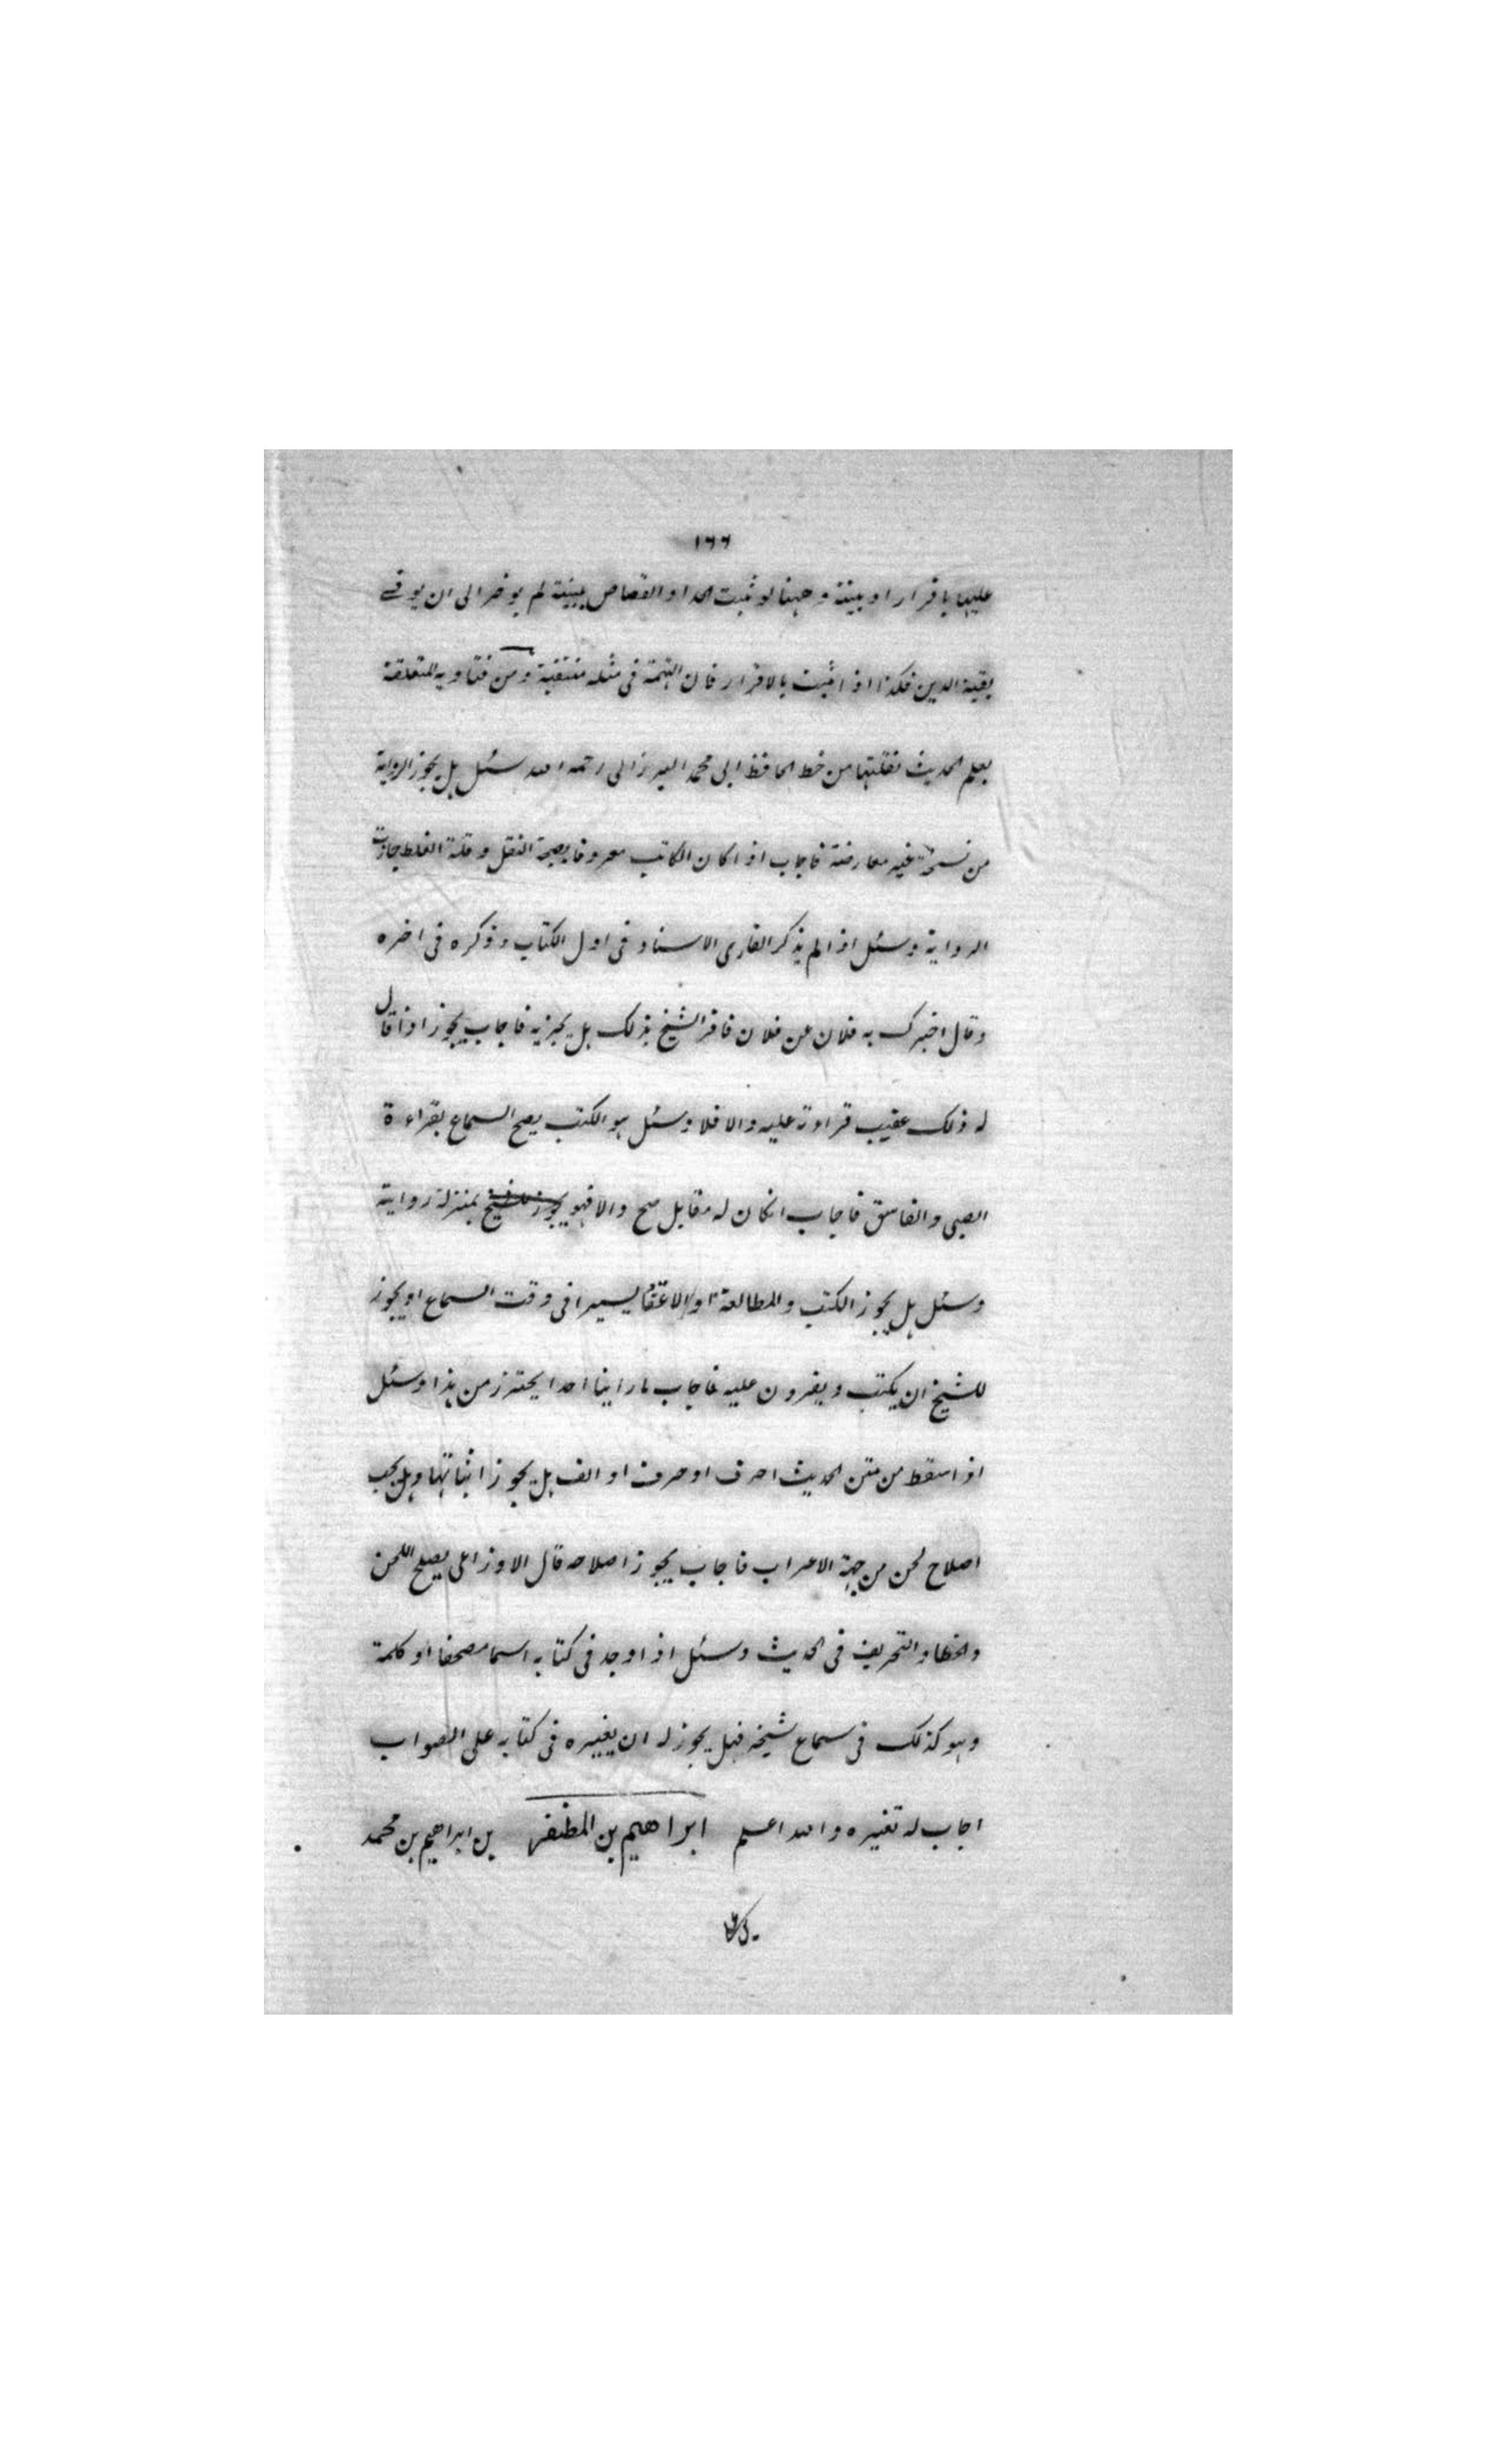 ١٦٦
عليها باقرار او بينة وههنا لو ثبت الحد او القصاص ببينة لم يوخر الى ان يوفى
بقية الدين فكذا اذا ثبت بالاقرار فان التهمة فى مثله منتفية ومن فتاويه المتعلقة
بعلم الحديث نقلتها من خط الحافظ ابى محمد البرزالى رحمه الله سئل هل يجوز الرواية
من نسخة غير معارضة فاجاب اذا كان الكاتب معروفا بصحة النقل وقلة الغلط جازت
الرواية وسئل اذا لم يذكر القارى الاسناد فى اول الكتاب وذكره فى اخره
وقال اخبرك به فلان عن فلان فاقر الشيخ بذلك هل يجزيه فاجاب يجوز اذا قال
له ذلك عقيب قراءته عليه والا فلا وسئل هو الكتب يصح السماع بقراءة
الصبى والفاسق فاجاب ان كان له مقابل صح والا فهو بمنزلة رواية
وسئل هل يجوز الكتب والمطالعة او الاغفا يسيرا فى وقت السماع او يجوز
للشيخ ان يكتب ويقرون عليه فاجاب ما راينا احدا يحترز من هذا وسئل
اذا سقط من متن الحديث احرف او حرف او الف هل يجوز اثباتها وهل يجب
اصلاح لحن من جهة الاعراب فاجاب يجوز اصلاحه قال الاوزاعى يصلح اللحن
والخطا والتحريف فى الحديث وسئل اذا وجد فى كتابه اسما مصحفا او كلمة
وهو كذلك فى سماع شيخه فهل يجوز له ان يغيره فى كتابه على الصواب
اجاب له تغييره والله اعلم ابراهيم بن المظفر بن ابراهيم بن محمد